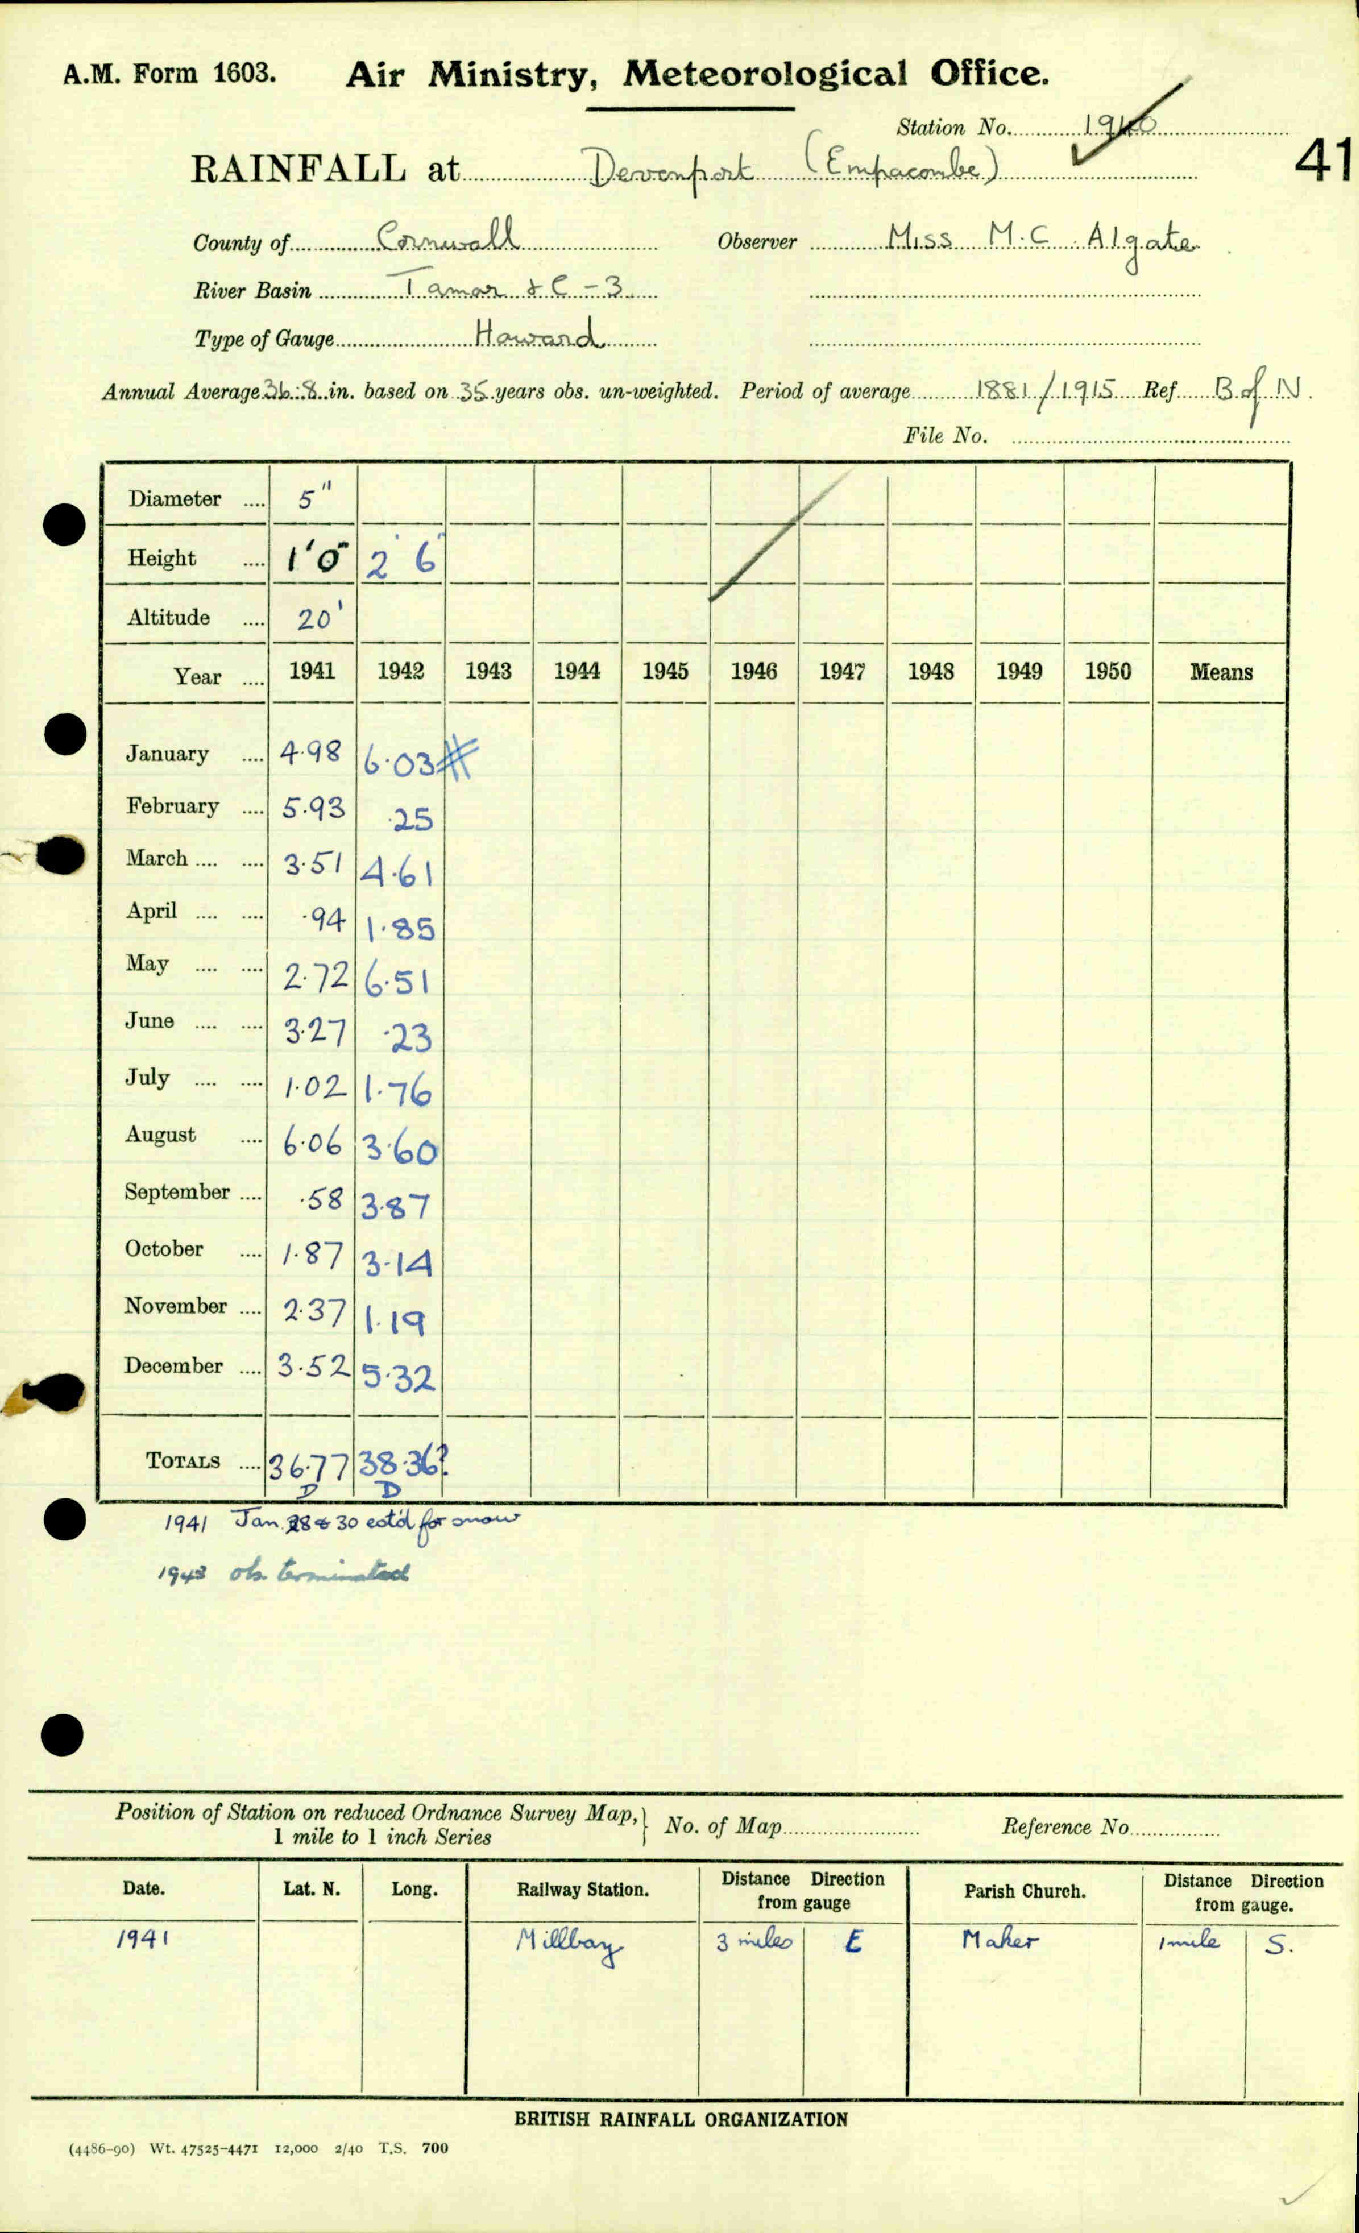 A.M. Form 1603. Air Ministry, Meteorological Office.
Station No. 1940
41
RAINFALL at Devonport (Empacombe)
County of Cornwall Observer Miss M.C. Algate
River Basin Tamar & C – 3
Type of Gauge Howard
Annual Average 36.8 in. based on 35 years obs. un-weighted. Period of average 1881/1915 Ref B of N.
File No.
Diameter .... 5"
Height .... 1'0" 2' 6"
Altitude .... 20'
Year .... 1941 1942 1943 1944 1945 1946 1947 1948 1949 1950 Means
January .... 4.98 6.03#
February .... 5.93 .25
March .... .... 3.51 4.61
April .... .... .94 1.85
May .... .... 2.72 6.51
June .... .... 3.27 .23
July .... .... 1.02 1.76
August .... 6.06 3.60
September .... .58 3.87
October .... 1.87 3.14
November .... 2.37 1.19
December .... 3.52 5.32
TOTALS .... 36.77 38.36?
D D
1941 Jan. 28 & 30 est'd for snow
1943 ob. terminated
Position of Station on reduced Ordnance Survey Map, } No. of Map Reference No.
1 mile to 1 inch Series
Date. Lat. N. Long. Railway Station. Distance Direction from gauge Parish Church. Distance Direction from gauge.
1941 Millbay 3 miles E Maker 1 mile S.
BRITISH RAINFALL ORGANIZATION
(4486-90) Wt. 47525-4471 12,000 2/40 T.S. 700